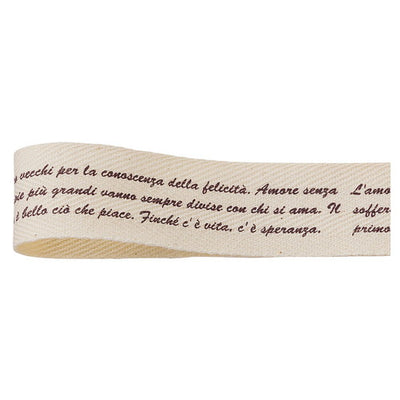 vecchi per la conoscenza della felicità. Amore senza L'amo
più grandi vanno sempre divise con chi si ama. Il soffer
è bello ciò che piace. Finché c'è vita, c'è speranza. primo